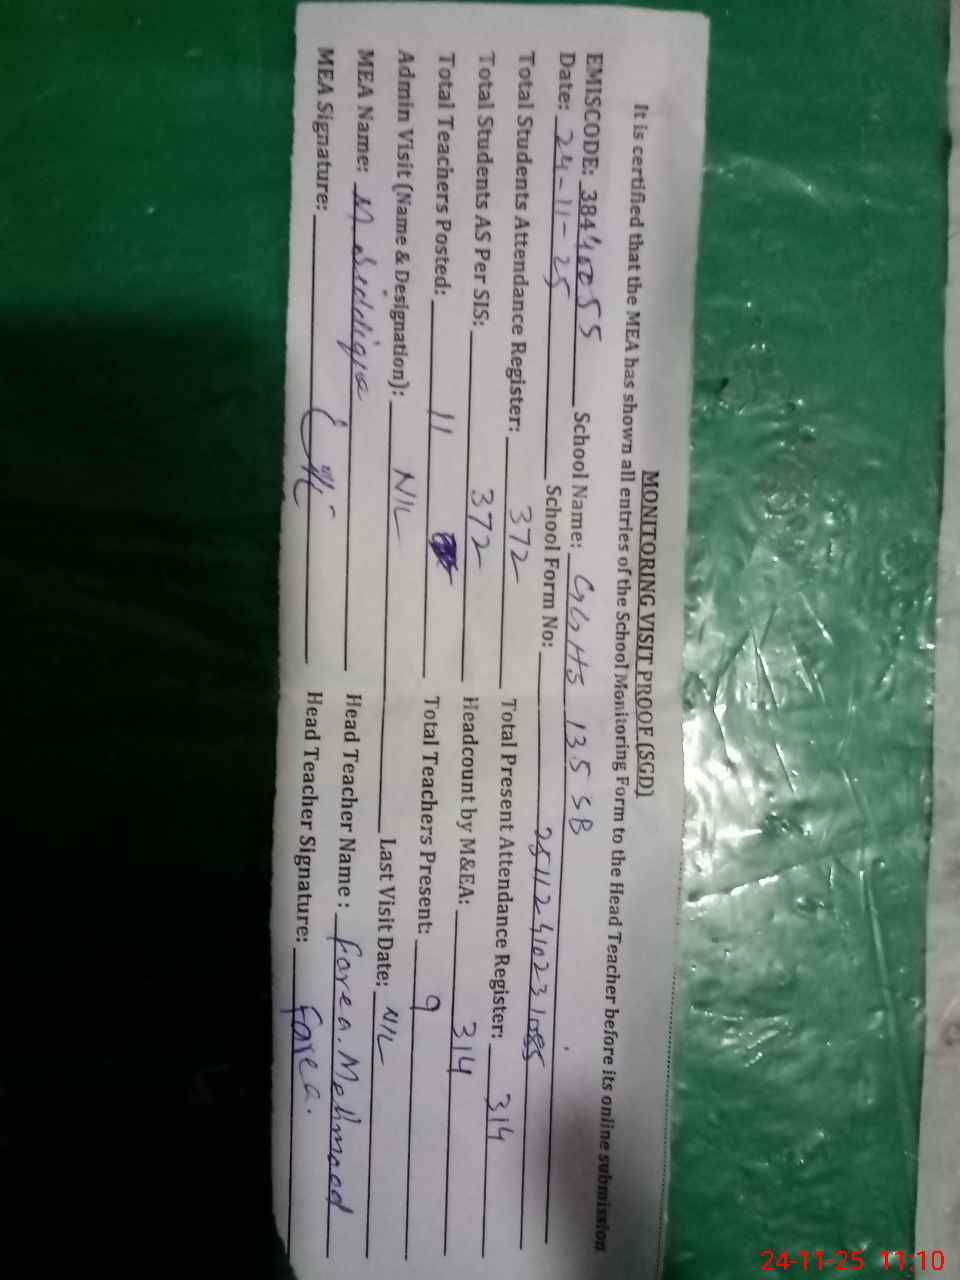 MONITORING VISIT PROOF (SGD)
It is certified that the MEA has shown all entries of the School Monitoring Form to the Head Teacher before its online submission
EMISCODE: 38440055 School Name: GGHS 135 SB
Date: 24-11-25 School Form No: 25112410231085
Total Students Attendance Register: 372 Total Present Attendance Register: 314
Total Students AS Per SIS: 372 Headcount by M&EA: 314
Total Teachers Posted: 11 Total Teachers Present: 9
Admin Visit (Name & Designation): NIL Last Visit Date: NIL
MEA Name: M Siddique Head Teacher Name : Forea. Mehmood
MEA Signature: Head Teacher Signature: Forea.
24-11-25 11:10